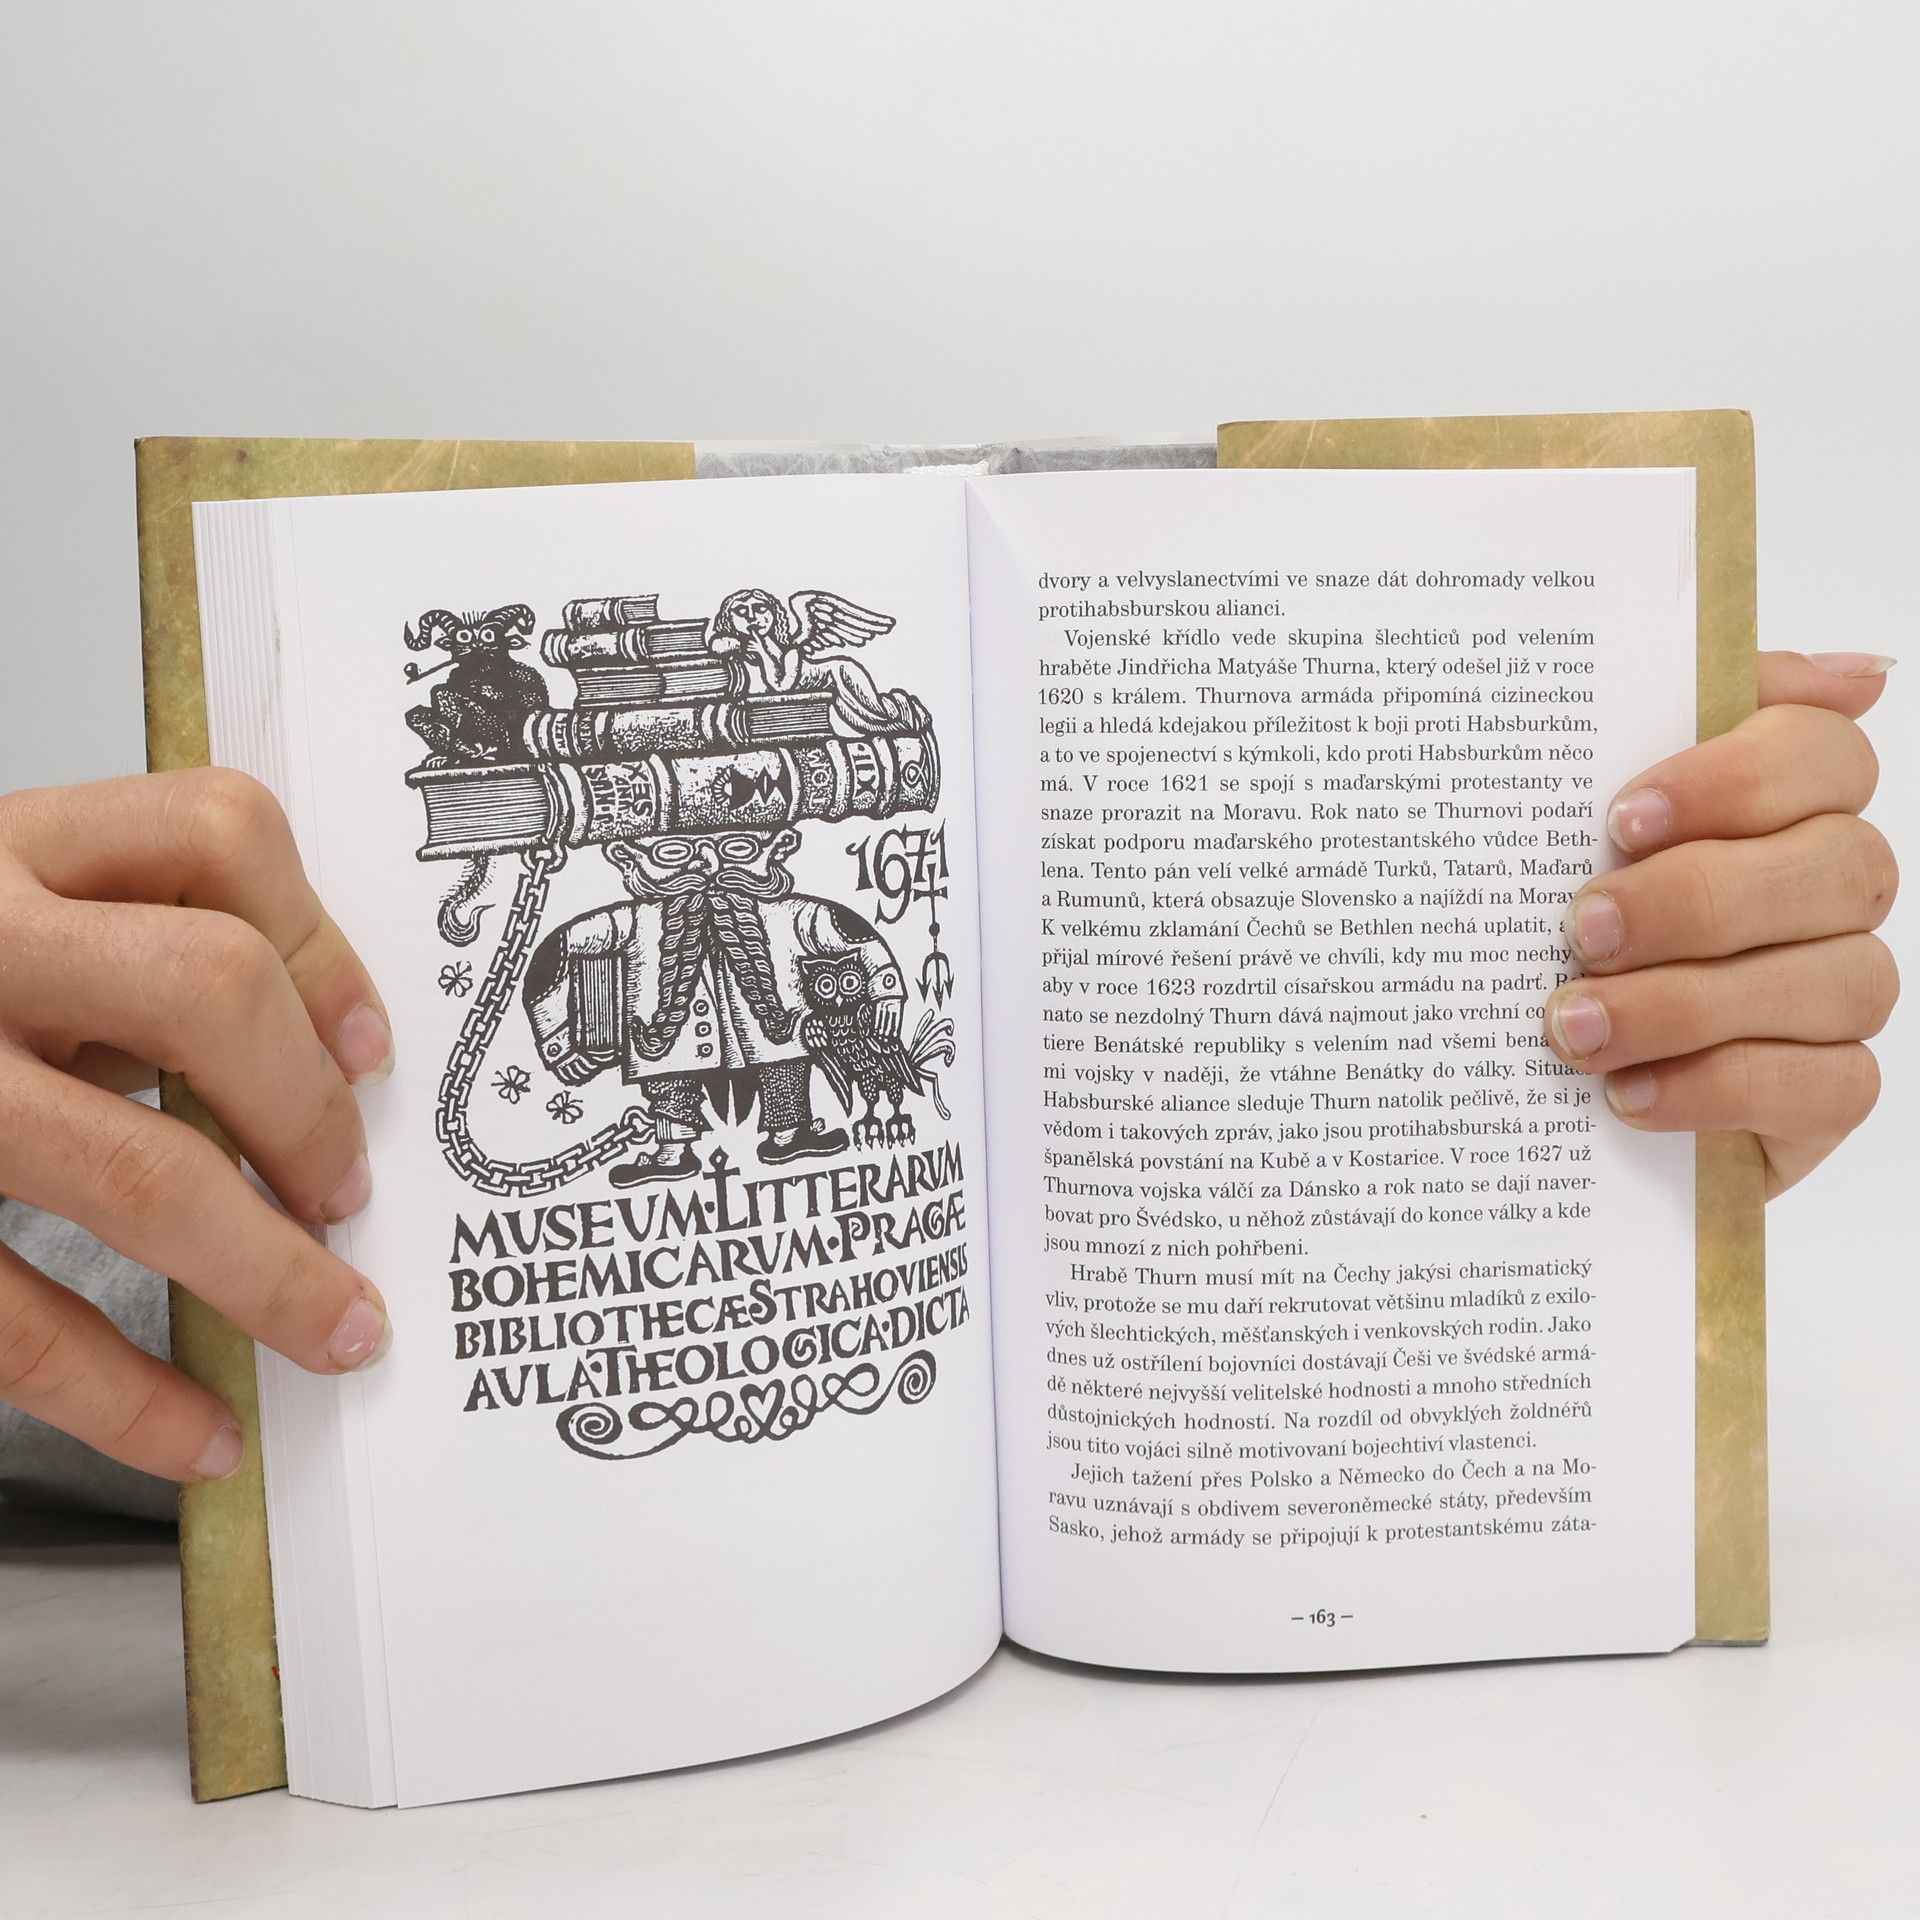 JANUS
LUNA
SEX
1671
MUSEUM·LITTERARUM
BOHEMICARUM·PRAGÆ
BIBLIOTHECÆ STRAHOVIENSIS
AULA·THEOLOGICA·DICTA
dvory a velvyslanectvími ve snaze dát dohromady velkou
protihabsburskou alianci.
Vojenské křídlo vede skupina šlechticů pod velením
hraběte Jindřicha Matyáše Thurna, který odešel již v roce
1620 s králem. Thurnova armáda připomíná cizineckou
legii a hledá kdejakou příležitost k boji proti Habsburkům,
a to ve spojenectví s kýmkoli, kdo proti Habsburkům něco
má. V roce 1621 se spojí s maďarskými protestanty ve
snaze prorazit na Moravu. Rok nato se Thurnovi podaří
získat podporu maďarského protestantského vůdce Beth-
lena. Tento pán velí velké armádě Turků, Tatarů, Maďarů
a Rumunů, která obsazuje Slovensko a najíždí na
K velkému zklamání Čechů se Bethlen nechá uplatit,
přijal mírové řešení právě ve chvíli, kdy mu moc
aby v roce 1623 rozdrtil císařskou armádu na padrť.
nato se nezdolný Thurn dává najmout jako vrchní
tiere Benátské republiky s velením nad všemi
mi vojsky v naději, že vtáhne Benátky do války.
Habsburské aliance sleduje Thurn natolik pečlivě, že si je
vědom i takových zpráv, jako jsou protihabsburská a proti-
španělská povstání na Kubě a v Kostarice. V roce 1627 už
Thurnova vojska válčí za Dánsko a rok nato se dají naver-
bovat pro Švédsko, u něhož zůstávají do konce války a kde
jsou mnozí z nich pohřbeni.
Hrabě Thurn musí mít na Čechy jakýsi charismatický
vliv, protože se mu daří rekrutovat většinu mladíků z exilo-
vých šlechtických, měšťanských i venkovských rodin. Jako
dnes už ostřílení bojovníci dostávají Češi ve švédské armá-
dě některé nejvyšší velitelské hodnosti a mnoho středních
důstojnických hodností. Na rozdíl od obvyklých žoldnéřů
jsou tito vojáci silně motivovaní bojechtiví vlastenci.
Jejich tažení přes Polsko a Německo do Čech a na Mo-
ravu uznávají s obdivem severoněmecké státy, především
Sasko, jehož armády se připojují k protestantskému záta-
– 163 –